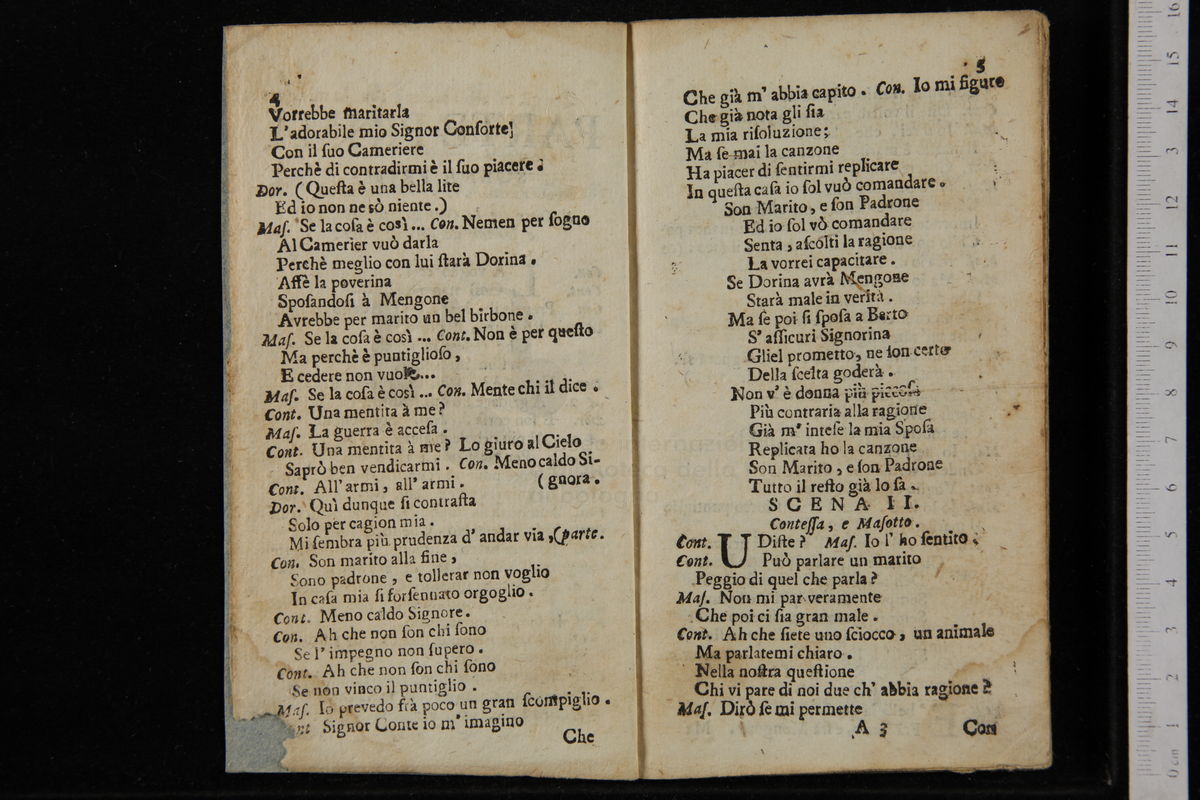 4
Vorrebbe maritarla
L'adorabile mio Signor Conſorte!
Con il ſuo Cameriere
Perchè di contradirmi è il ſuo piacere.
Dor. (Queſta è una bella lite
Ed io non ne sò niente.)
Maſ. Se la coſa è così... Con. Nemen per ſogno
Al Camerier vuò darla
Perchè meglio con lui ſtarà Dorina.
Affè la poverina
Spoſandoſi à Mengone
Avrebbe per marito un bel birbone.
Maſ. Se la coſa è così... Cont. Non è per queſto
Ma perchè è puntiglioſo,
E cedere non vuole...
Maſ. Se la coſa è così... Con. Mente chi il dice.
Cont. Una mentita à me?
Maſ. La guerra è acceſa.
Cont. Una mentita à me? Lo giuro al Cielo
Saprò ben vendicarmi. Con. Meno caldo Si-
Cont. All'armi, all'armi. (gnora.
Dor. Quì dunque ſi contraſta
Solo per cagion mia.
Mi ſembra più prudenza d'andar via, (parte.
Con. Son marito alla fine,
Sono padrone, e tollerar non voglio
In caſa mia ſi forſennato orgoglio.
Cont. Meno caldo Signore.
Con. Ah che non ſon chi ſono
Se l'impegno non ſupero.
Cont. Ah che non ſon chi ſono
Se non vinco il puntiglio.
Maſ. Io prevedo frà poco un gran ſcompiglio.
nt Signor Conte io m'imagino
Che
5
Che già m'abbia capito. Con. Io mi figuro
Che già nota gli ſia
La mia riſoluzione;
Ma ſe mai la canzone
Ha piacer di ſentirmi replicare
In queſta caſa io ſol vuò comandare.
Son Marito, e ſon Padrone
Ed io ſol vò comandare
Senta, aſcolti la ragione
La vorrei capacitare.
Se Dorina avrà Mengone
Starà male in verità.
Ma ſe poi ſi ſpoſa a Berto
S'aſſicuri Signorina
Gliel prometto, ne ſon certo
Della ſcelta goderà.
Non v'è donna più piccoſa
Più contraria alla ragione
Già m'inteſe la mia Spoſa
Replicata ho la canzone
Son Marito, e ſon Padrone
Tutto il reſto già lo ſa.
SCENA II.
Conteſſa, e Maſotto.
Cont. UDiſte? Maſ. Io l'ho ſentito.
Cont. Può parlare un marito
Peggio di quel che parla?
Maſ. Non mi par veramente
Che poi ci ſia gran male.
Cont. Ah che ſiete uno ſciocco, un animale
Ma parlatemi chiaro.
Nella noſtra queſtione
Chi vi pare di noi due ch'abbia ragione?
Maſ. Dirò ſe mi permette
A 3 Con